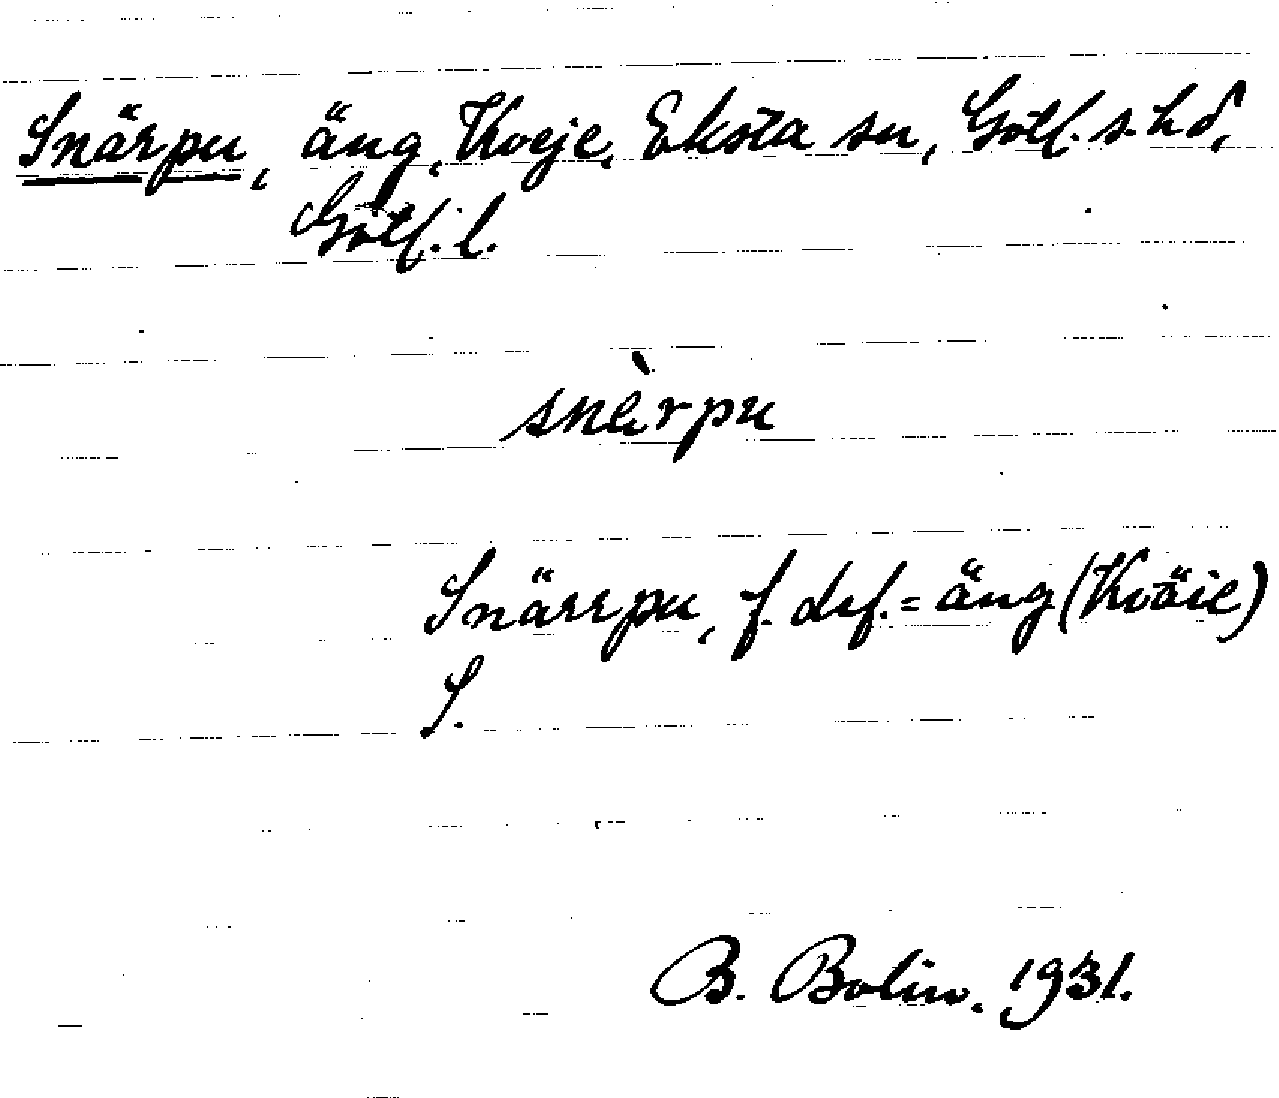 Snärpu, äng, Kveje, Eksta sn, Gotl. s. hd,
Gotl. l.
snèrpu
Snärrpu, f. def. = äng (Kväie)
S.
B. Bolin. 1931.